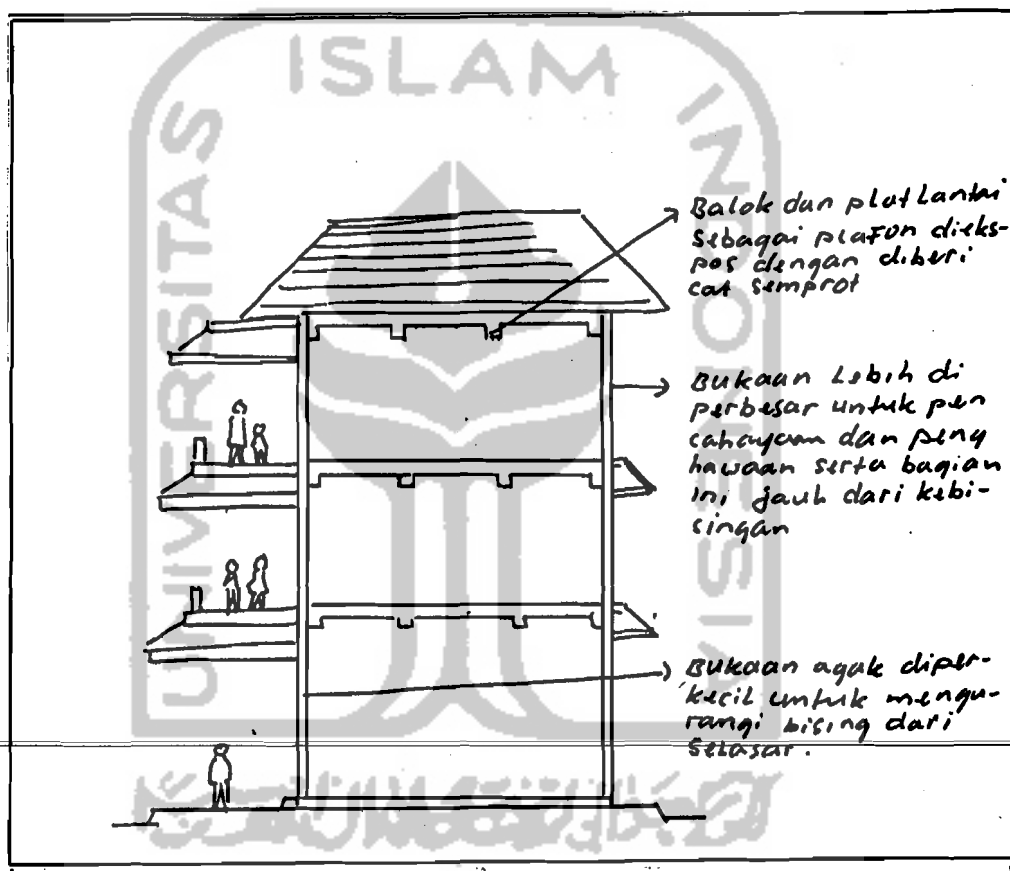 ISLAM
UNIVERSITAS
INDONESIA
Balok dan plat lantai
sebagai plafon dieks-
pos dengan diberi
cat semprot
Bukaan lebih di
perbesar untuk pen
cahayaan dan peng
hawaan serta bagian
ini jauh dari kebi-
singan
Bukaan agak diper-
kecil untuk mengu-
rangi bising dari
selasar.